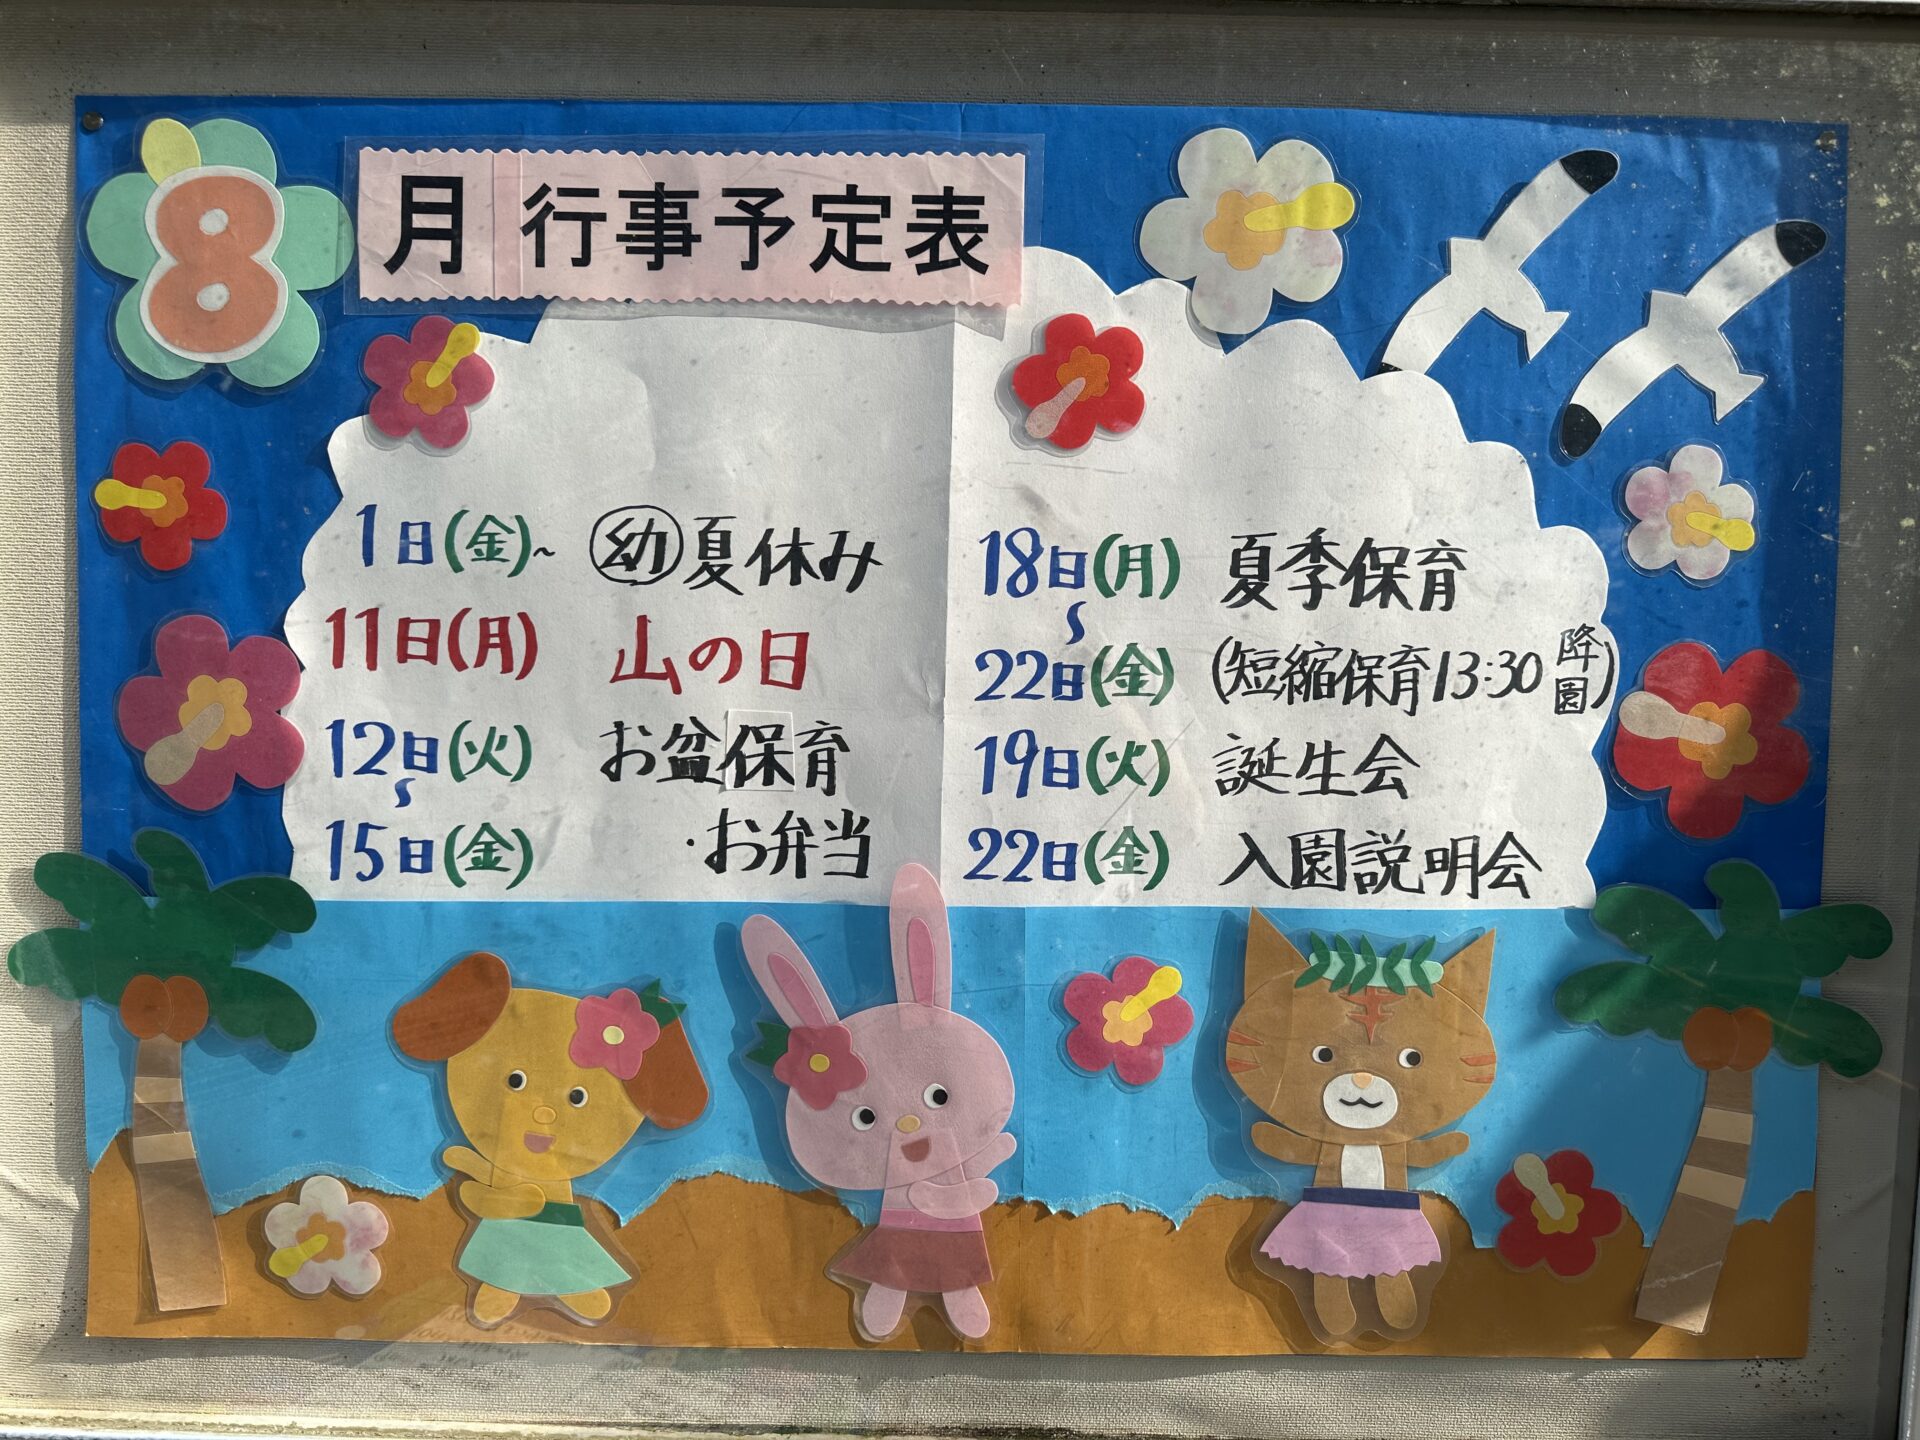 8月 行事予定表
1日(金)~ ㊙夏休み
11日(月) 山の日
12日(火)
〜
15日(金)
お盆保育
・お弁当
18日(月)
〜
22日(金)
夏季保育
(短縮保育13:30降園)
19日(火) 誕生会
22日(金) 入園説明会